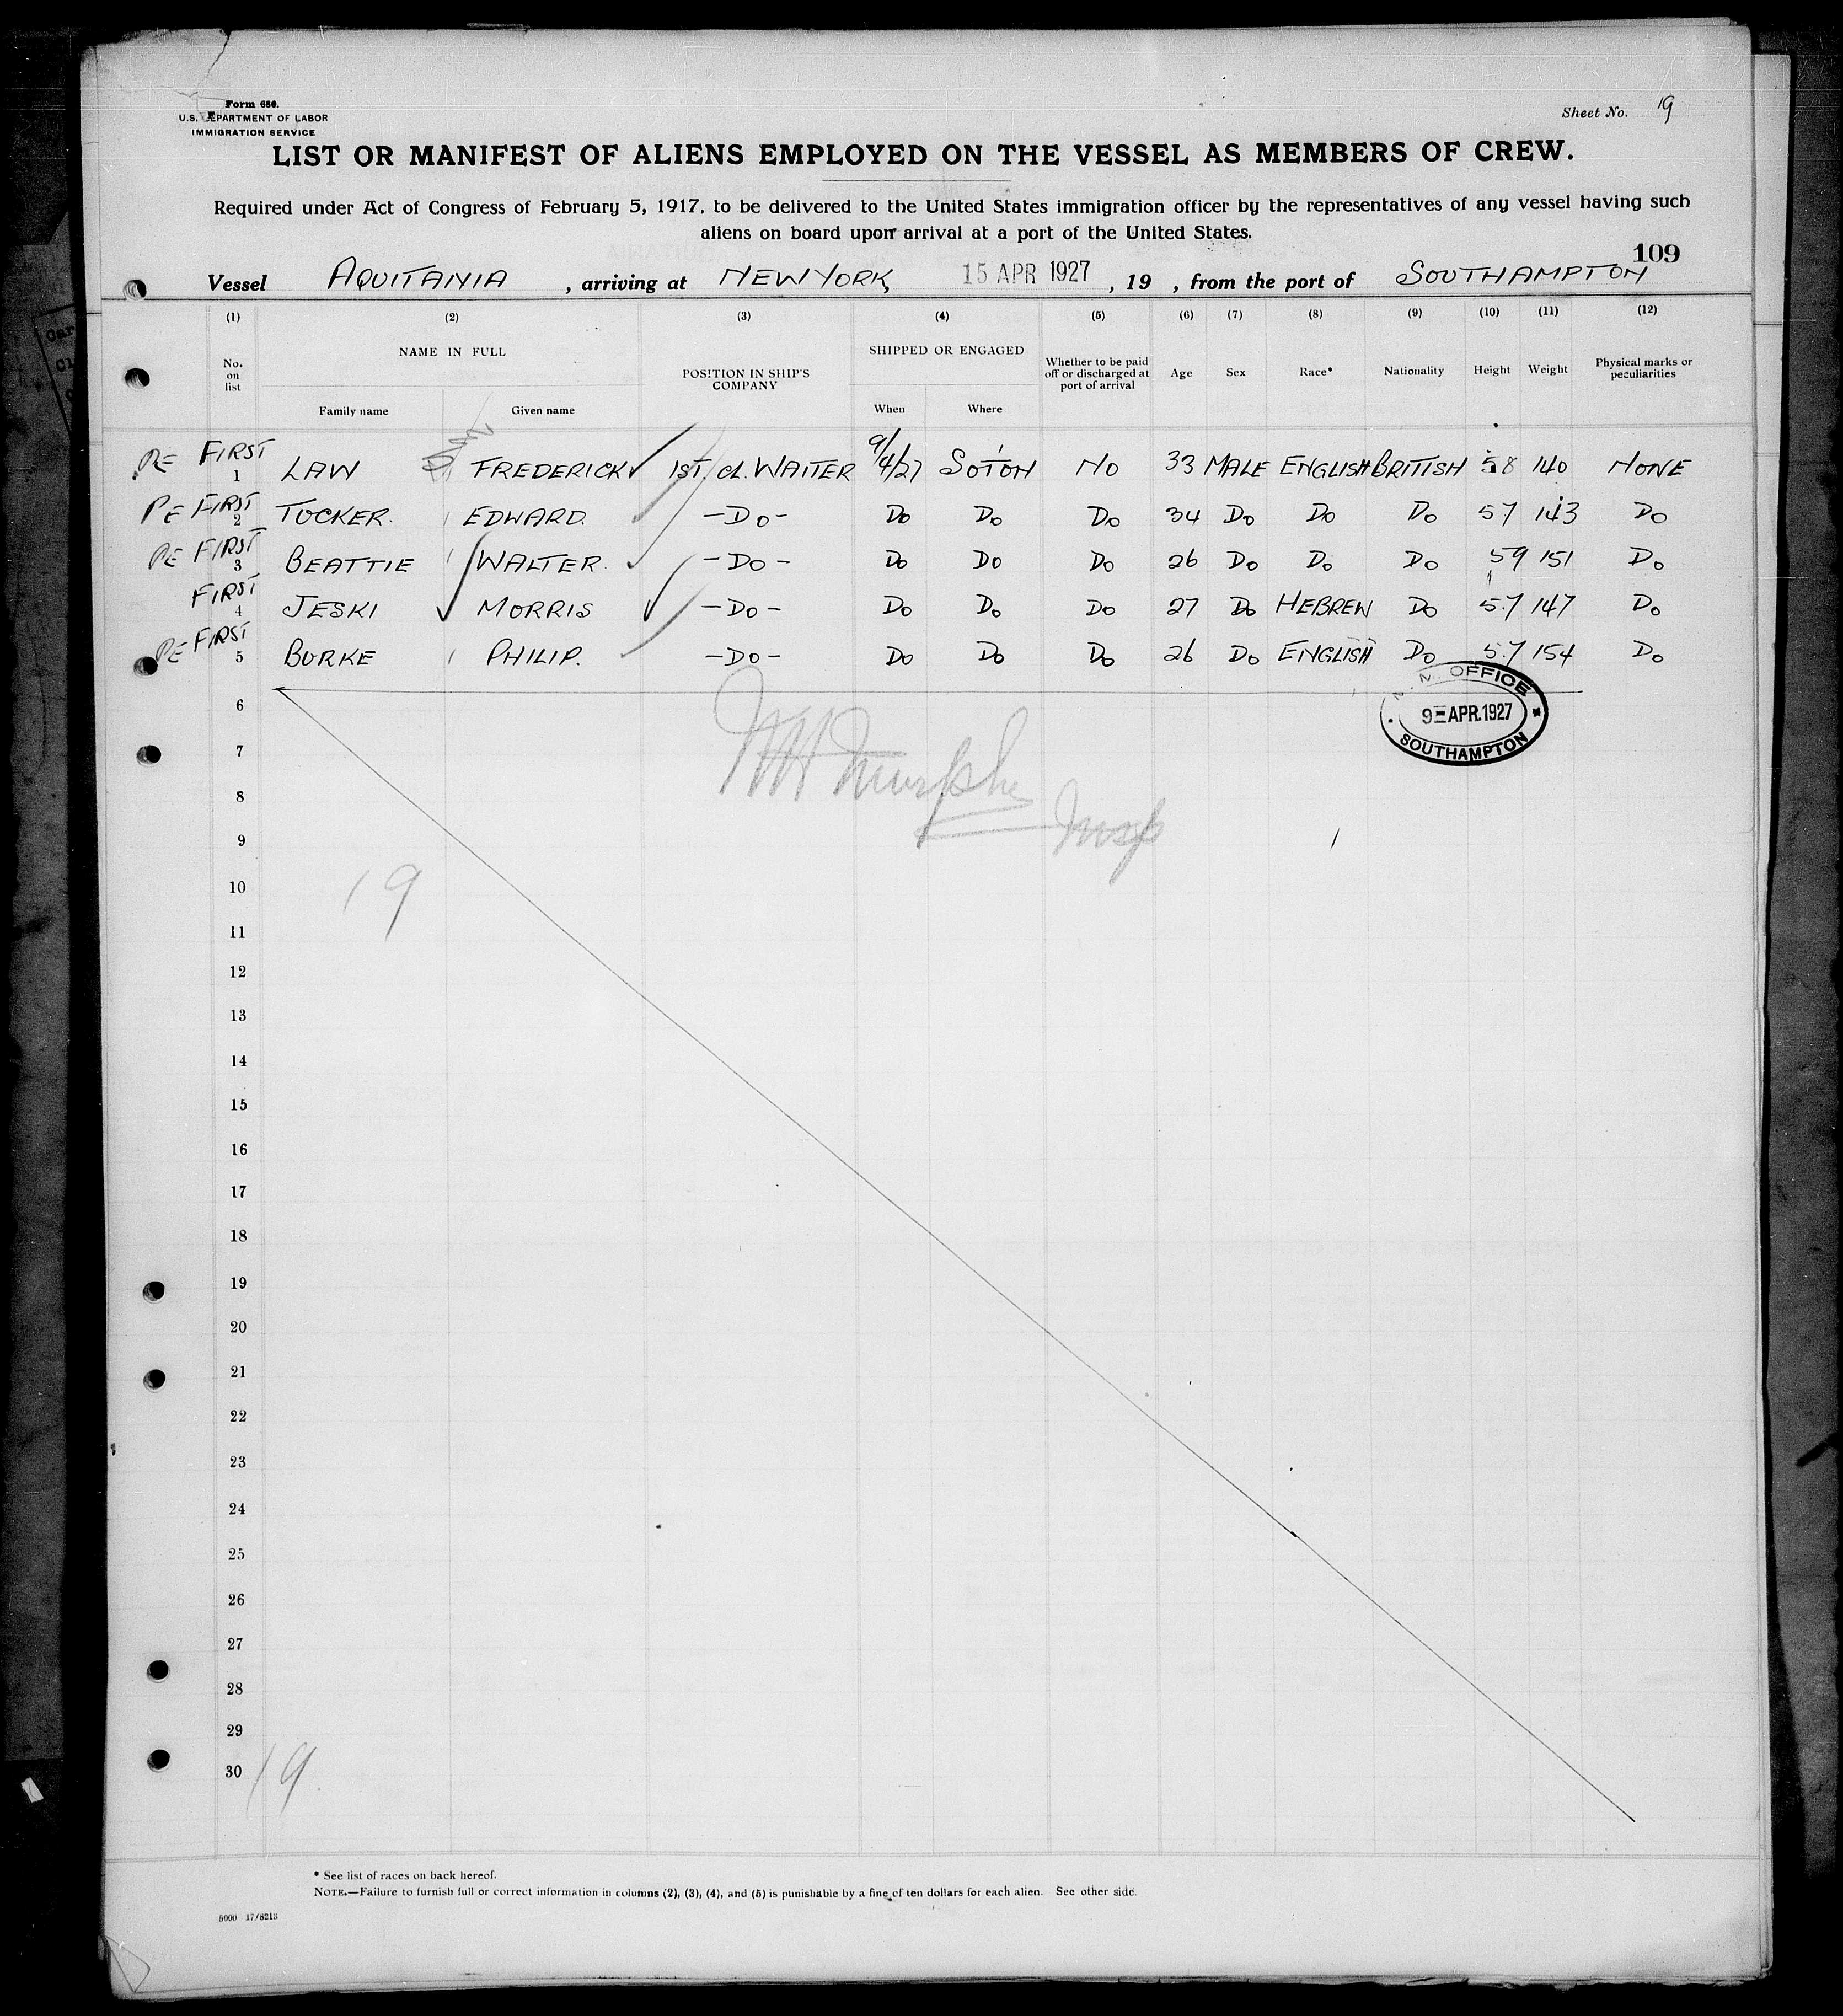 Form 680.
U.S. DEPARTMENT OF LABOR
IMMIGRATION SERVICE
Sheet No. 19
LIST OR MANIFEST OF ALIENS EMPLOYED ON THE VESSEL AS MEMBERS OF CREW.
Required under Act of Congress of February 5, 1917, to be delivered to the United States immigration officer by the representatives of any vessel having such
aliens on board upon arrival at a port of the United States.
109
Vessel AQUITANIA , arriving at NEW YORK, 15 APR 1927 , 19 , from the port of SOUTHAMPTON
(1) (2) (3) (4) (5) (6) (7) (8) (9) (10) (11) (12)
No. on list NAME IN FULL Family name Given name POSITION IN SHIP'S COMPANY SHIPPED OR ENGAGED When Where Whether to be paid off or discharged at port of arrival Age Sex Race* Nationality Height Weight Physical marks or peculiarities
RE FIRST 1 LAW FREDERICK 1ST. CL. WAITER 9/4/27 SO'TON NO 33 MALE ENGLISH BRITISH 5 8 140 NONE
RE FIRST 2 TUCKER. EDWARD. -DO- DO DO DO 34 DO DO DO 5 7 143 DO
RE FIRST 3 BEATTIE WALTER. -DO- DO DO DO 26 DO DO DO 5 9 151 DO
FIRST 4 JESKI MORRIS -DO- DO DO DO 27 DO HEBREW DO 5.7 147 DO
RE FIRST 5 BURKE PHILIP. -DO- DO DO DO 26 DO ENGLISH DO 5.7 154 DO
M. OFFICE
9 APR.1927
SOUTHAMPTON
6
7
Murphy
8
Insp
9
10
19
11
12
13
14
15
16
17
18
19
20
21
22
23
24
25
26
27
28
29
30
19.
* See list of races on back hereof.
NOTE.—Failure to furnish full or correct information in columns (2), (3), (4), and (5) is punishable by a fine of ten dollars for each alien. See other side.
5000 17/8213